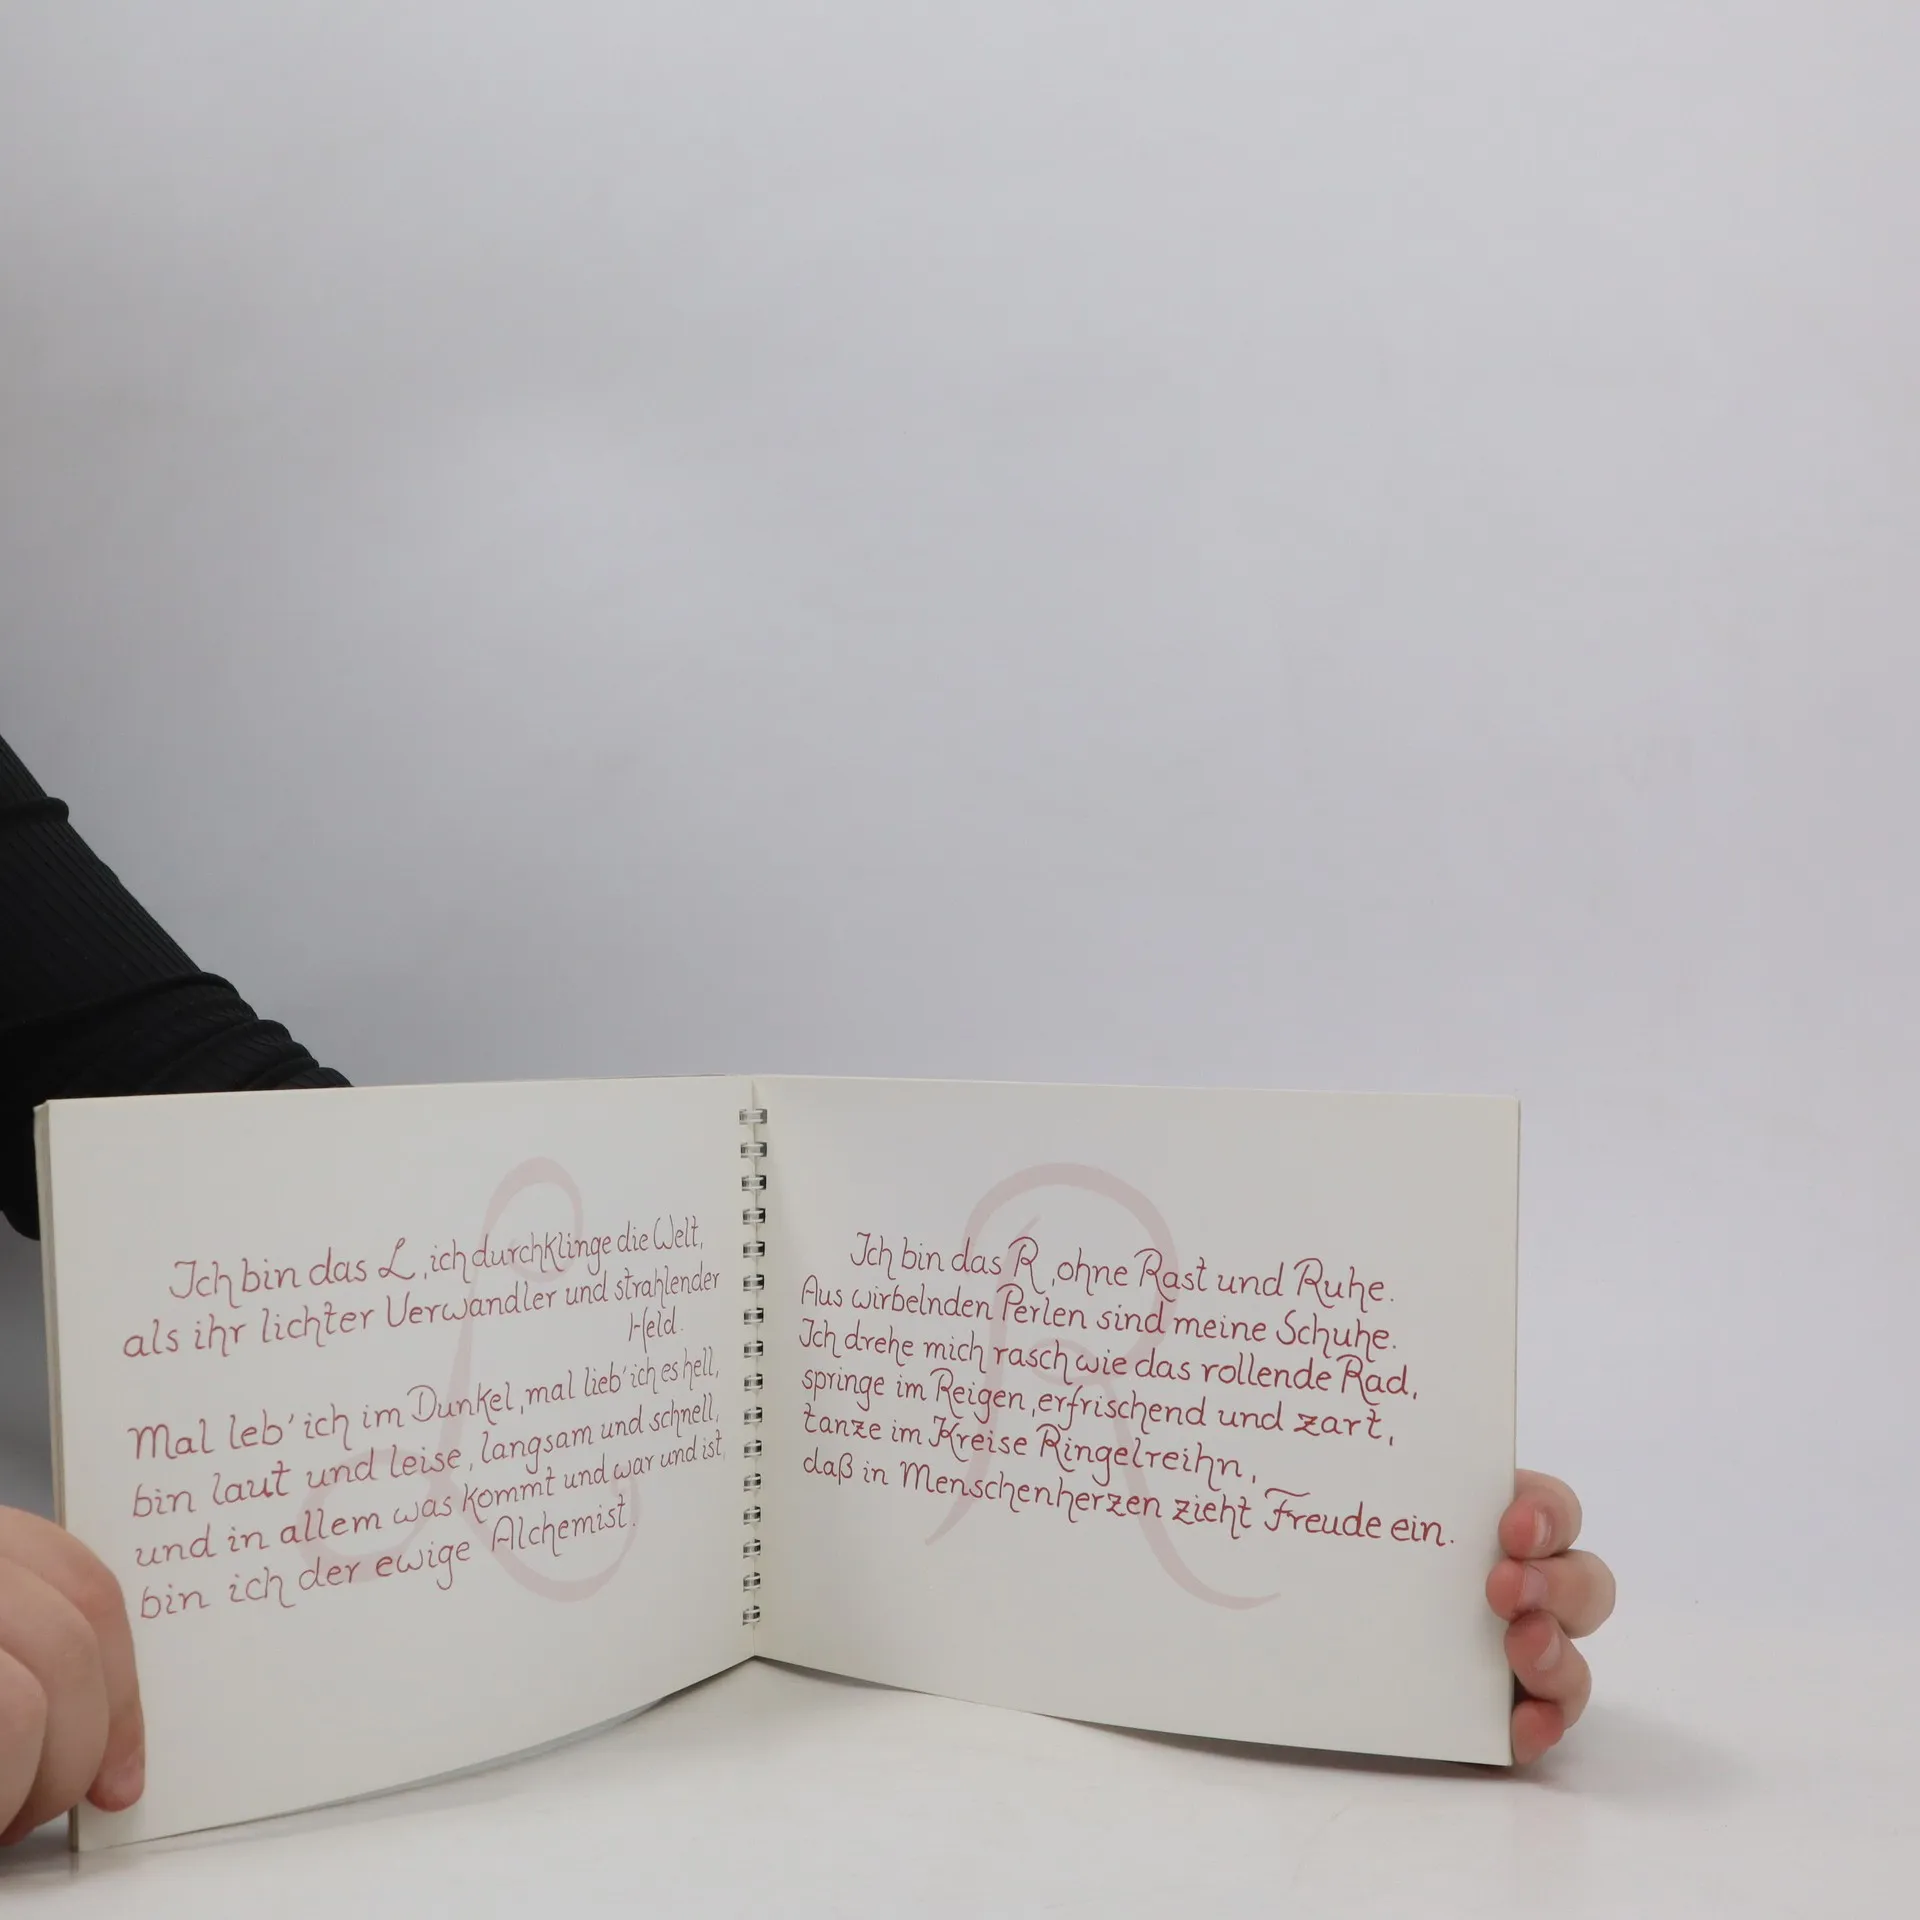 Ich bin das L, ich durchklinge die Welt,
als ihr lichter Verwandler und strahlender
Held.
Mal leb' ich im Dunkel, mal lieb' ich es hell,
bin laut und leise, langsam und schnell,
und in allem was kommt und war und ist,
bin ich der ewige Alchemist.
Ich bin das R, ohne Rast und Ruhe.
Aus wirbelnden Perlen sind meine Schuhe.
Ich drehe mich rasch wie das rollende Rad,
springe im Reigen, erfrischend und zart,
tanze im Kreise Ringelreihn,
daß in Menschenherzen zieht Freude ein.
L
R